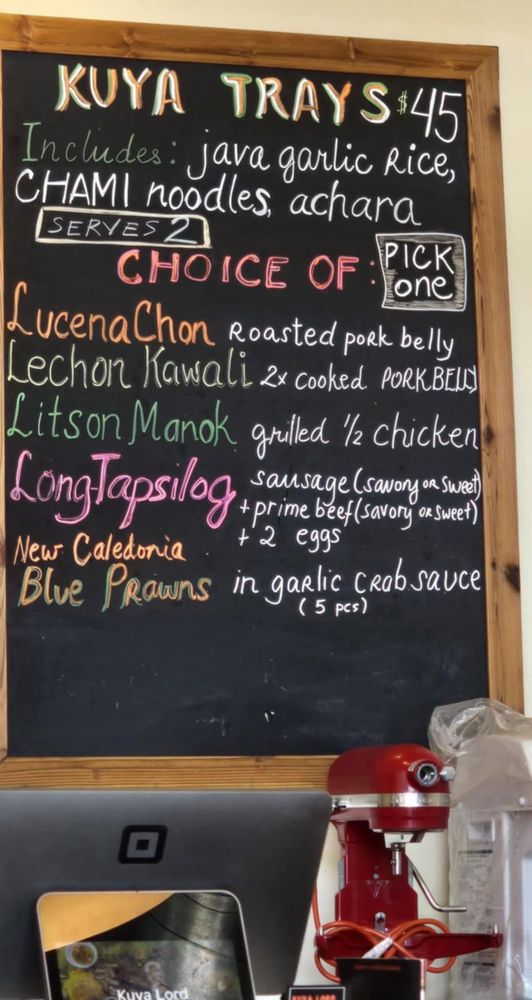 KUYA TRAYS $45
Includes: java garlic Rice,
CHAMI noodles, achara
SERVES 2
CHOICE OF: PICK one
LucenaChon Roasted pork belly
Lechon Kawali 2x cooked PORK BELLY
Litson Manok grilled 1/2 chicken
LongTapsilog sausage (savory or sweet)
+ prime beef (savory or sweet)
+ 2 eggs
New Caledonia
Blue Prawns in garlic crab sauce
(5 pcs)
Kuya Lord
KUYA LORD